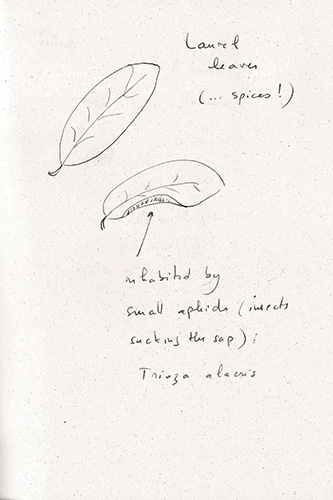 Laurel
leaves
(... spices!)
inhabited by
small aphids (insects
sucking the sap):
Trioza alacris